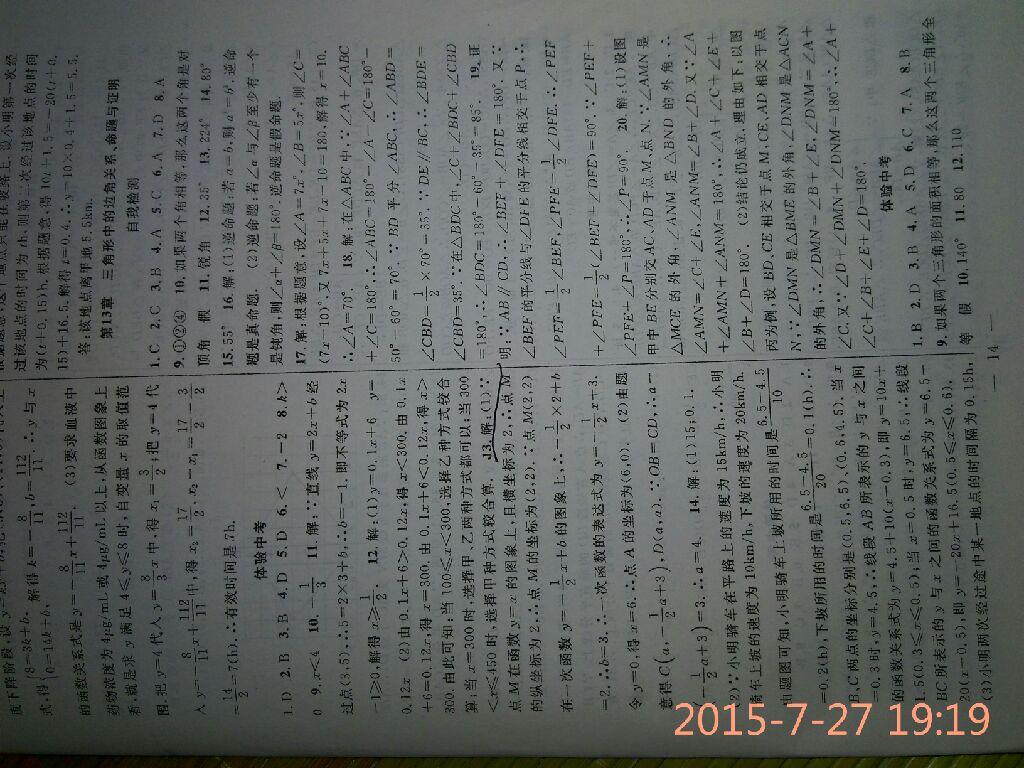 度下降阶段设
{8=3k+b, 0=14k+b, 解得 k=-8/11, b=112/11. ∴y与x
的函数关系式是y=-8/11x+112/11. (3)要求血液中
药物浓度为4μg/mL或4μg/mL以上,从函数图象上
看就是求y满足4≤y≤8时,自变量x的取值范
围.把y=4代入y=8/3x中,得x₁=3/2;把y=4代
入y=-8/11x+112/11中,得x₂=17/2, x₂-x₁=17/2-3/2
=14/2=7(h).∴有效时间是7h.
体验中考
1.D 2.B 3.B 4.D 5.D 6.< 7.-2 8.k>
0 9.x<4 10.-1/3 11.解:∵直线y=2x+b经
过点(3,5),∴5=2×3+b,∴b=-1,即不等式为2x
-1≥0,解得x≥1/2. 12.解:(1)y=0.1x+6 y=
0.12x (2)由0.1x+6>0.12x,得x<300,由0.1x
+6=0.12x,得x=300,由0.1x+6<0.12x,得x>
300.由此可知:当100≤x<300,选择乙种方式较合
算;当x=300时,选择甲、乙两种方式都可以;当300
<x≤450时,选择甲种方式较合算. 13.解:(1)∵
点M在函数y=x的图象上,且横坐标为2,∴点M
的纵坐标为2,∴点M的坐标为(2,2).∵点M(2,2)
在一次函数y=-1/2x+b的图象上,∴-1/2×2+b
=2,∴b=3,∴一次函数的表达式为y=-1/2x+3,
令y=0,得x=6,∴点A的坐标为(6,0). (2)由题
意得C(a,-1/2a+3),D(a,a).∵OB=CD,∴a-
(-1/2a+3)=3,∴a=4. 14.解:(1)15;0.1.
(2)∵小明骑车在平路上的速度为15km/h,∴小明
骑车上坡的速度为10km/h,下坡的速度为20km/h.
由题图可知,小明骑车上坡所用的时间是(6.5-4.5)/10
=0.2(h),下坡所用的时间是(6.5-4.5)/20=0.1(h).∴
B,C两点的坐标分别是(0.5,6.5),(0.6,4.5).当x
=0.3时,y=4.5,∴线段AB所表示的y与x之间
的函数关系式为y=4.5+10(x-0.3),即y=10x+
1.5(0.3≤x≤0.5);当x=0.5时,y=6.5,∴线段
BC所表示的y与x之间的函数关系式为y=6.5-
20(x-0.5),即y=-20x+16.5(0.5≤x≤0.6).
(3)小明两次经过途中某一地点的时间间隔为0.15h,
根据题意,这个地点只能在坡路上.设小明第一次经
过该地点的时间为th,则第二次经过该地点的时间
为(t+0.15)h,根据题意,得10t+1.5=-20(t+0.
15)+16.5,解得t=0.4,∴y=10×0.4+1.5=5.5.
答:该地点离甲地5.5km.
第13章 三角形中的边角关系、命题与证明
自我检测
1.C 2.C 3.B 4.A 5.C 6.A 7.D 8.A
9.①②④ 10.如果两个角相等,那么这两个角是对
顶角 假 11.锐角 12.35° 13.224° 14.80°
15.55° 16.解:(1)逆命题:若a=b,则a²=b².逆命
题是真命题. (2)逆命题:若∠α与∠β至少有一个
是钝角,则∠α+∠β=180°.逆命题是假命题.
17.解:根据题意,设∠A=7x°,∠B=5x°,则∠C=
(7x-10)°.又7x+5x+7x-10=180,解得x=10.
∴∠A=70°. 18.解:在△ABC中,∵∠A+∠ABC
+∠C=180°,∴∠ABC=180°-∠A-∠C=180°-
50°-60°=70°,∵BD平分∠ABC,∴∠ABD=
∠CBD=1/2×70°=35°.∵DE∥BC,∴∠BDE=
∠CBD=35°.∵在△BDC中,∠C+∠BDC+∠CBD
=180°,∴∠BDC=180°-60°-35°=85°. 19.证
明:∵AB∥CD,∴∠BEF+∠DFE=180°,又∵
∠BEF的平分线与∠DFE的平分线相交于点P,∴
∠PEF=1/2∠BEF,∠PFE=1/2∠DFE.∴∠PEF
+∠PFE=1/2(∠BEF+∠DFE)=90°.∵∠PEF+
∠PFE+∠P=180°,∴∠P=90°. 20.解:(1)设图
甲中BE分别交AC,AD于点M,点N.∵∠AMN是
△MCE的外角,∠ANM是△BND的外角,∴
∠AMN=∠C+∠E,∠ANM=∠B+∠D.又∵∠A
+∠AMN+∠ANM=180°,∴∠A+∠C+∠E+
∠B+∠D=180°. (2)结论仍成立.理由如下:以图
丙为例,设BD,CE相交于点M,CE,AD相交于点
N,∵∠DMN是△BME的外角,∠DNM是△ACN
的外角,∴∠DMN=∠B+∠E,∠DNM=∠A+
∠C.又∵∠D+∠DMN+∠DNM=180°,∴∠A+
∠C+∠B+∠E+∠D=180°.
体验中考
1.B 2.D 3.B 4.A 5.D 6.C 7.A 8.B
9.如果两个三角形的面积相等,那么这两个三角形全
等 假 10.140° 11.80 12.110
— 14 —
2015-7-27 19:19